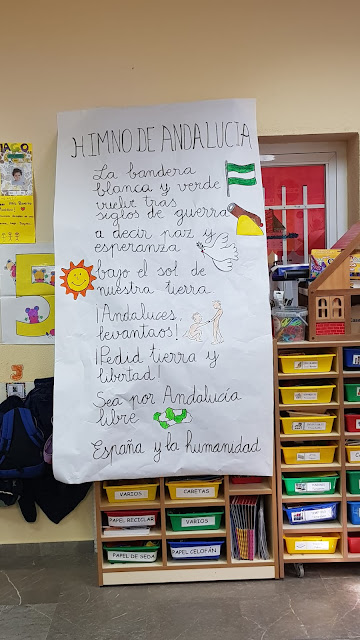 HIMNO DE ANDALUCIA
La bandera
blanca y verde
vuelve tras
siglos de guerra
a decir paz y
esperanza
bajo el sol de
nuestra tierra
¡Andaluces,
levantaos!
¡Pedid tierra y
libertad!
Sea por Andalucía
libre
España y la humanidad
5
3
VARIOS
CARETAS
PAPEL RECICLAR
VARIOS
PAPEL DE SEDA
PAPEL CELOFÁN